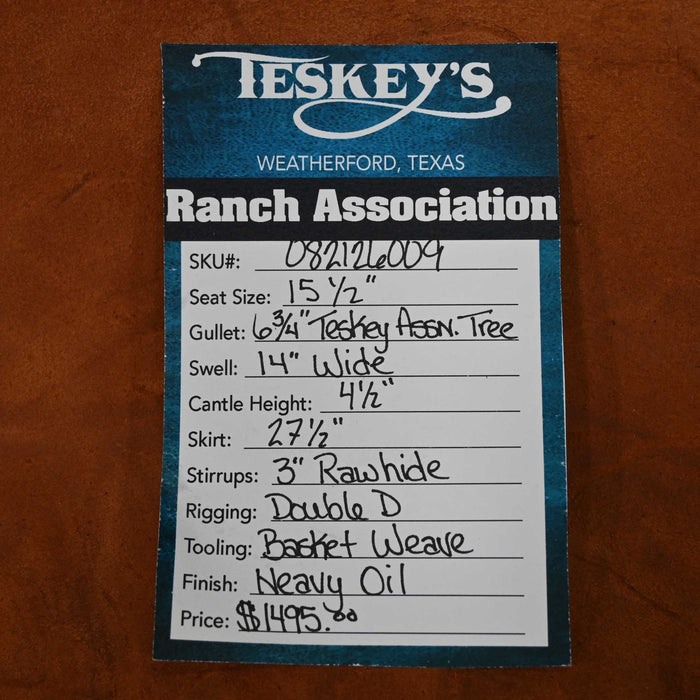 TESKEY'S
WEATHERFORD, TEXAS
Ranch Association
SKU#: 082126009
Seat Size: 15 1/2"
Gullet: 6 3/4" Teskey Assn. Tree
Swell: 14" Wide
Cantle Height: 4 1/2"
Skirt: 27 1/2"
Stirrups: 3" Rawhide
Rigging: Double D
Tooling: Basket Weave
Finish: Heavy Oil
Price: $1495.00